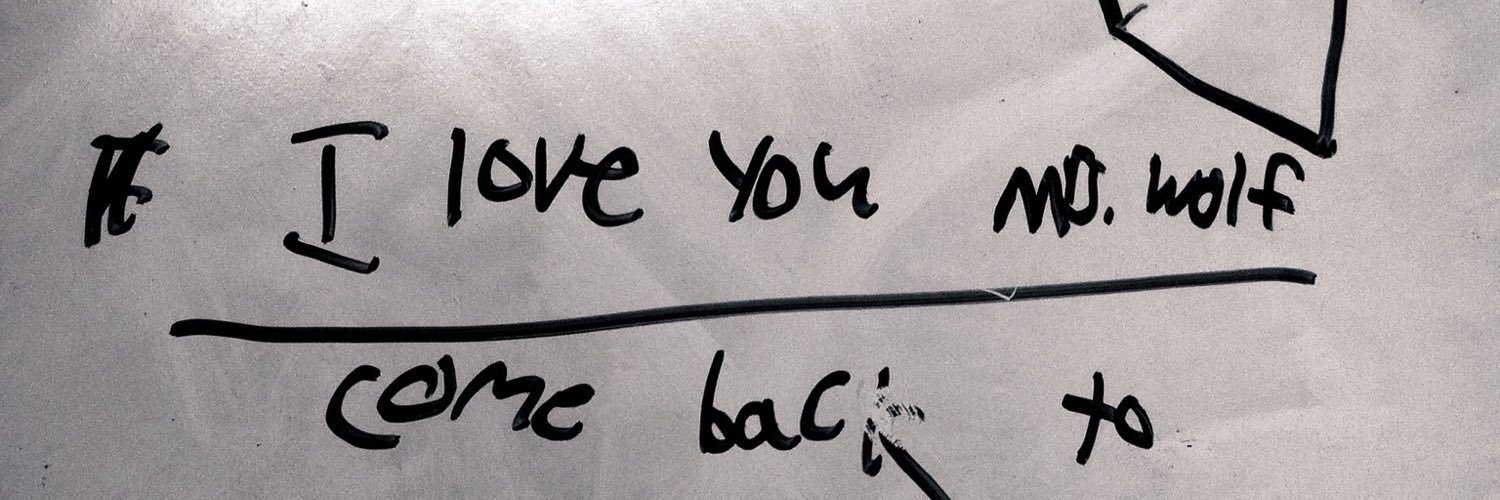 I love you Ms. Wolf
come back to